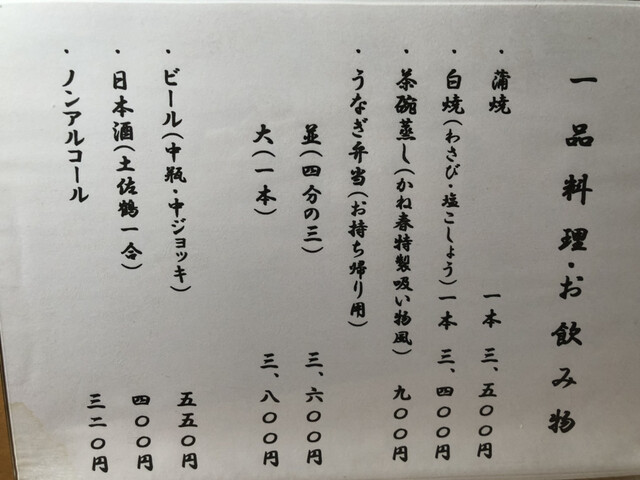 一品料理・お飲み物
・蒲焼 一本 三、五〇〇円
・白焼(わさび・塩こしょう)一本 三、四〇〇円
・茶碗蒸し(かね春特製吸い物風) 九〇〇円
・うなぎ弁当(お持ち帰り用)
並(四分の三) 三、六〇〇円
大(一本) 三、八〇〇円
・ビール(中瓶・中ジョッキ) 五五〇円
・日本酒(土佐鶴一合) 四〇〇円
・ノンアルコール 三二〇円